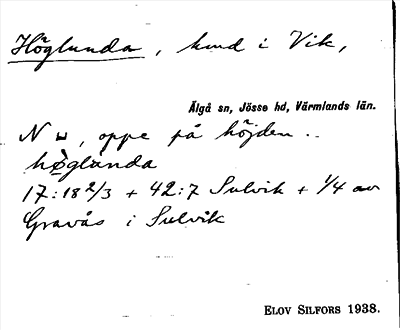 Höglunda, hmd i Vik,
Älgå sn, Jösse hd, Värmlands län.
N ⊔, oppe på höjden..
høglànda
17:18 2/3 + 42:7 Sulvik + 1/4 av
Gravås i Sulvik
ELOV SILFORS 1938.